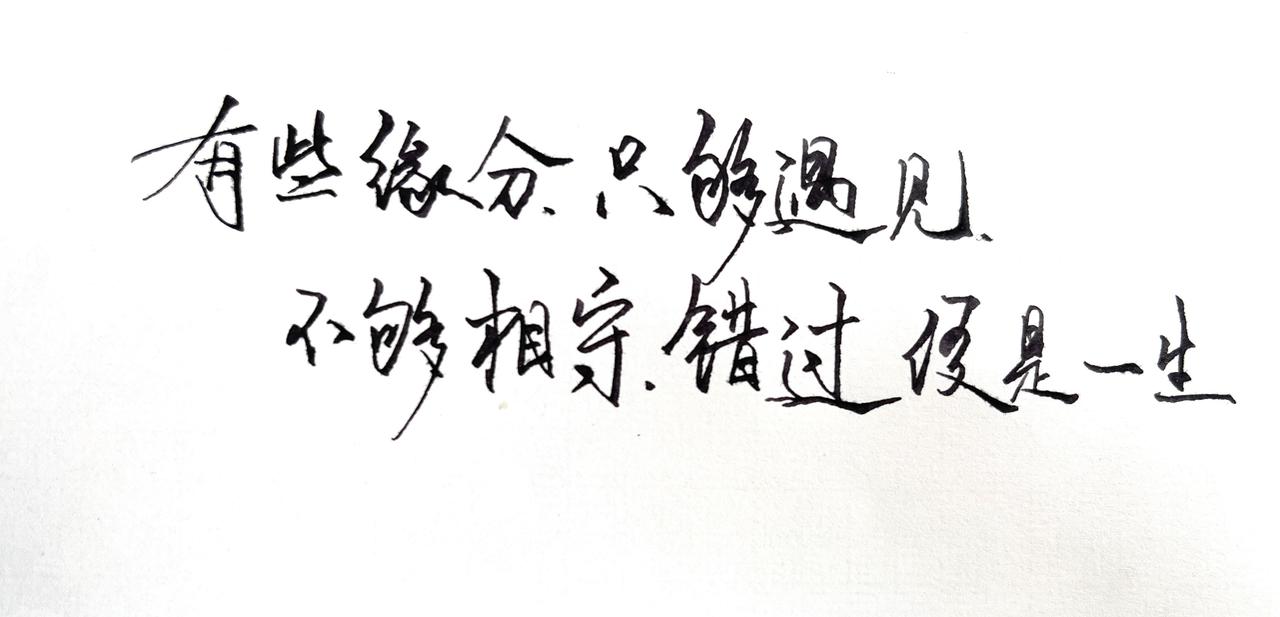 有些缘分、只够遇见、
不够相守、错过便是一生